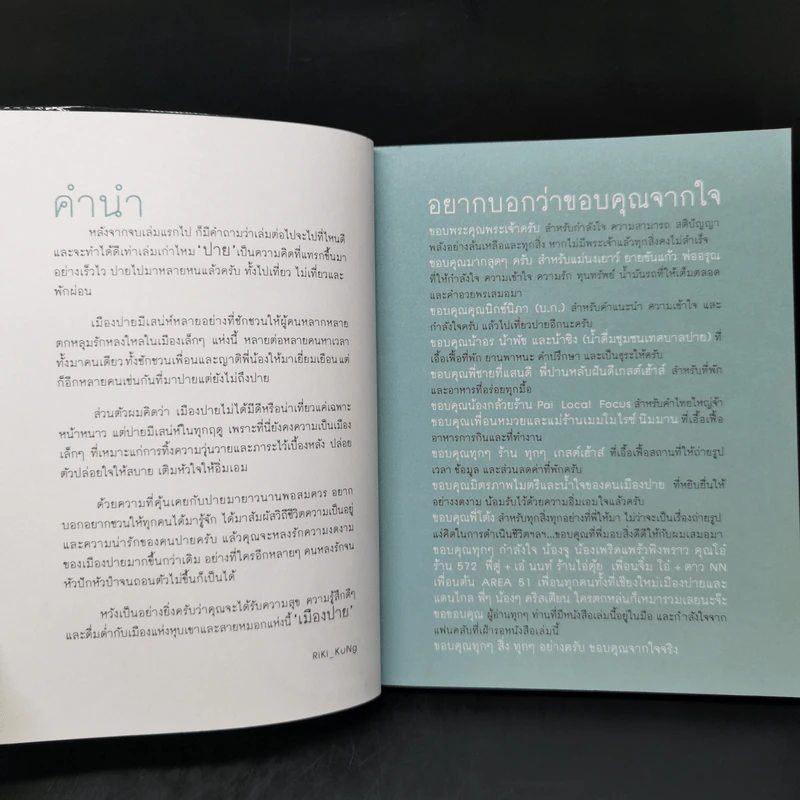 คำนำ
หลังจากจบเล่มแรกไป ก็มีคำถามว่าเล่มต่อไปจะไปที่ไหนดี
และจะทำได้ดีเท่าเล่มเก่าไหม 'ปาย' เป็นความคิดที่แทรกขึ้นมา
อย่างเร็วไว ปายไปมาหลายหนแล้วครับ ทั้งไปเที่ยว ไม่เที่ยวและ
พักผ่อน
เมืองปายมีเสน่ห์หลายอย่างที่ชักชวนให้ผู้คนหลากหลาย
ตกหลุมรักหลงใหลในเมืองเล็กๆ แห่งนี้ หลายต่อหลายคนหาเวลา
ทั้งมาคนเดียว ทั้งชักชวนเพื่อนและญาติพี่น้องให้มาเยี่ยมเยือน แต่
ก็อีกหลายคนเช่นกันที่มาปายแต่ยังไม่ถึงปาย
ส่วนตัวผมคิดว่า เมืองปายไม่ได้มีดีหรือน่าเที่ยวแค่เฉพาะ
หน้าหนาว แต่ปายมีเสน่ห์ในทุกฤดู เพราะที่นี่ยังคงความเป็นเมือง
เล็กๆ ที่เหมาะแก่การทิ้งความวุ่นวายและภาระไว้เบื้องหลัง ปล่อย
ตัวปล่อยใจให้สบาย เติมหัวใจให้อิ่มเอม
ด้วยความที่คุ้นเคยกับปายมายาวนานพอสมควร อยาก
บอกอยากชวนให้ทุกคนได้มารู้จัก ได้มาสัมผัสวิถีชีวิตความเป็นอยู่
และความน่ารักของคนปายครับ แล้วคุณจะหลงรักความงดงาม
ของเมืองปายมากขึ้นกว่าเดิม อย่างที่ใครอีกหลายๆ คนหลงรักจน
หัวปักหัวปำจนถอนตัวไม่ขึ้นก็เป็นได้
หวังเป็นอย่างยิ่งครับว่าคุณจะได้รับความสุข ความรู้สึกดีๆ
และดื่มด่ำกับเมืองแห่งหุบเขาและสายหมอกแห่งนี้ 'เมืองปาย'
RiKi_KuNg
อยากบอกว่าขอบคุณจากใจ
ขอบพระคุณพระเจ้าครับ สำหรับกำลังใจ ความสามารถ สติปัญญา
พลังอย่างล้นเหลือและทุกสิ่ง หากไม่มีพระเจ้าแล้วทุกสิ่งคงไม่สำเร็จ
ขอบคุณมากสุดๆ ครับ สำหรับแม่นงเยาว์ ยายขันแก้ว พ่ออรุณ
ที่ให้กำลังใจ ความเข้าใจ ความรัก ทุนทรัพย์ น้ำมันรถที่ให้เต็มตลอด
และคำอวยพรเสมอมา
ขอบคุณคุณนิกซ์นิภา (บ.ก.) สำหรับคำแนะนำ ความเข้าใจ และ
กำลังใจครับ แล้วไปเที่ยวปายอีกนะครับ
ขอบคุณน้าอร น้าพัช และน้าซิง (น้ำดื่มชุมชนเทศบาลปาย) ที่
เอื้อเฟื้อที่พัก ยานพาหนะ คำปรึกษา และเป็นธุระให้ครับ
ขอบคุณพี่ชายที่แสนดี พี่ปานหลับฝันดีเกสต์เฮ้าส์ สำหรับที่พัก
และอาหารที่อร่อยทุกมื้อ
ขอบคุณน้องกล้วยร้าน Pai Local Focus สำหรับคำไทยใหญ่จ้า
ขอบคุณเพื่อนหมวยและแม่ร้านเมมโมไรซ์ นิมมาน ที่เอื้อเฟื้อ
อาหารการกินและที่ทำงาน
ขอบคุณทุกๆ ร้าน ทุกๆ เกสต์เฮ้าส์ ที่เอื้อเฟื้อสถานที่ให้ถ่ายรูป
เวลา ข้อมูล และส่วนลดค่าที่พักครับ
ขอบคุณมิตรภาพไมตรีและน้ำใจของคนเมืองปาย ที่หยิบยื่นให้
อย่างงดงาม น้อมรับไว้ด้วยความอิ่มเอมใจแล้วครับ
ขอบคุณพี่โต้ง สำหรับทุกสิ่งทุกอย่างที่พี่ให้มา ไม่ว่าจะเป็นเรื่องถ่ายรูป
แง่คิดในการดำเนินชีวิตฯลฯ...ขอบคุณที่พี่มอบสิ่งดีดีให้กับผมเสมอมา
ขอบคุณทุกๆ กำลังใจ น้องจู น้องเพริดแพร้วพิงพราว คุณโอ๋
ร้าน 572 พี่ตู่ + เอ๋ นนท์ ร้านไอ่ตุ้ย เพื่อนจิ๋ม โอ๋ + ดาว NN
เพื่อนตั้น AREA 51 เพื่อนทุกคนทั้งที่เชียงใหม่เมืองปายและ
แดนไกล พี่ๆ น้องๆ คริสเตียน ใครตกหล่นก็เหมารวมเลยนะจ๊ะ
ขอขอบคุณ ผู้อ่านทุกๆ ท่านที่มีหนังสือเล่มนี้อยู่ในมือ และกำลังใจจาก
แฟนคลับที่เฝ้ารอหนังสือเล่มนี้
ขอบคุณทุกๆ สิ่ง ทุกๆ อย่างครับ ขอบคุณจากใจจริง